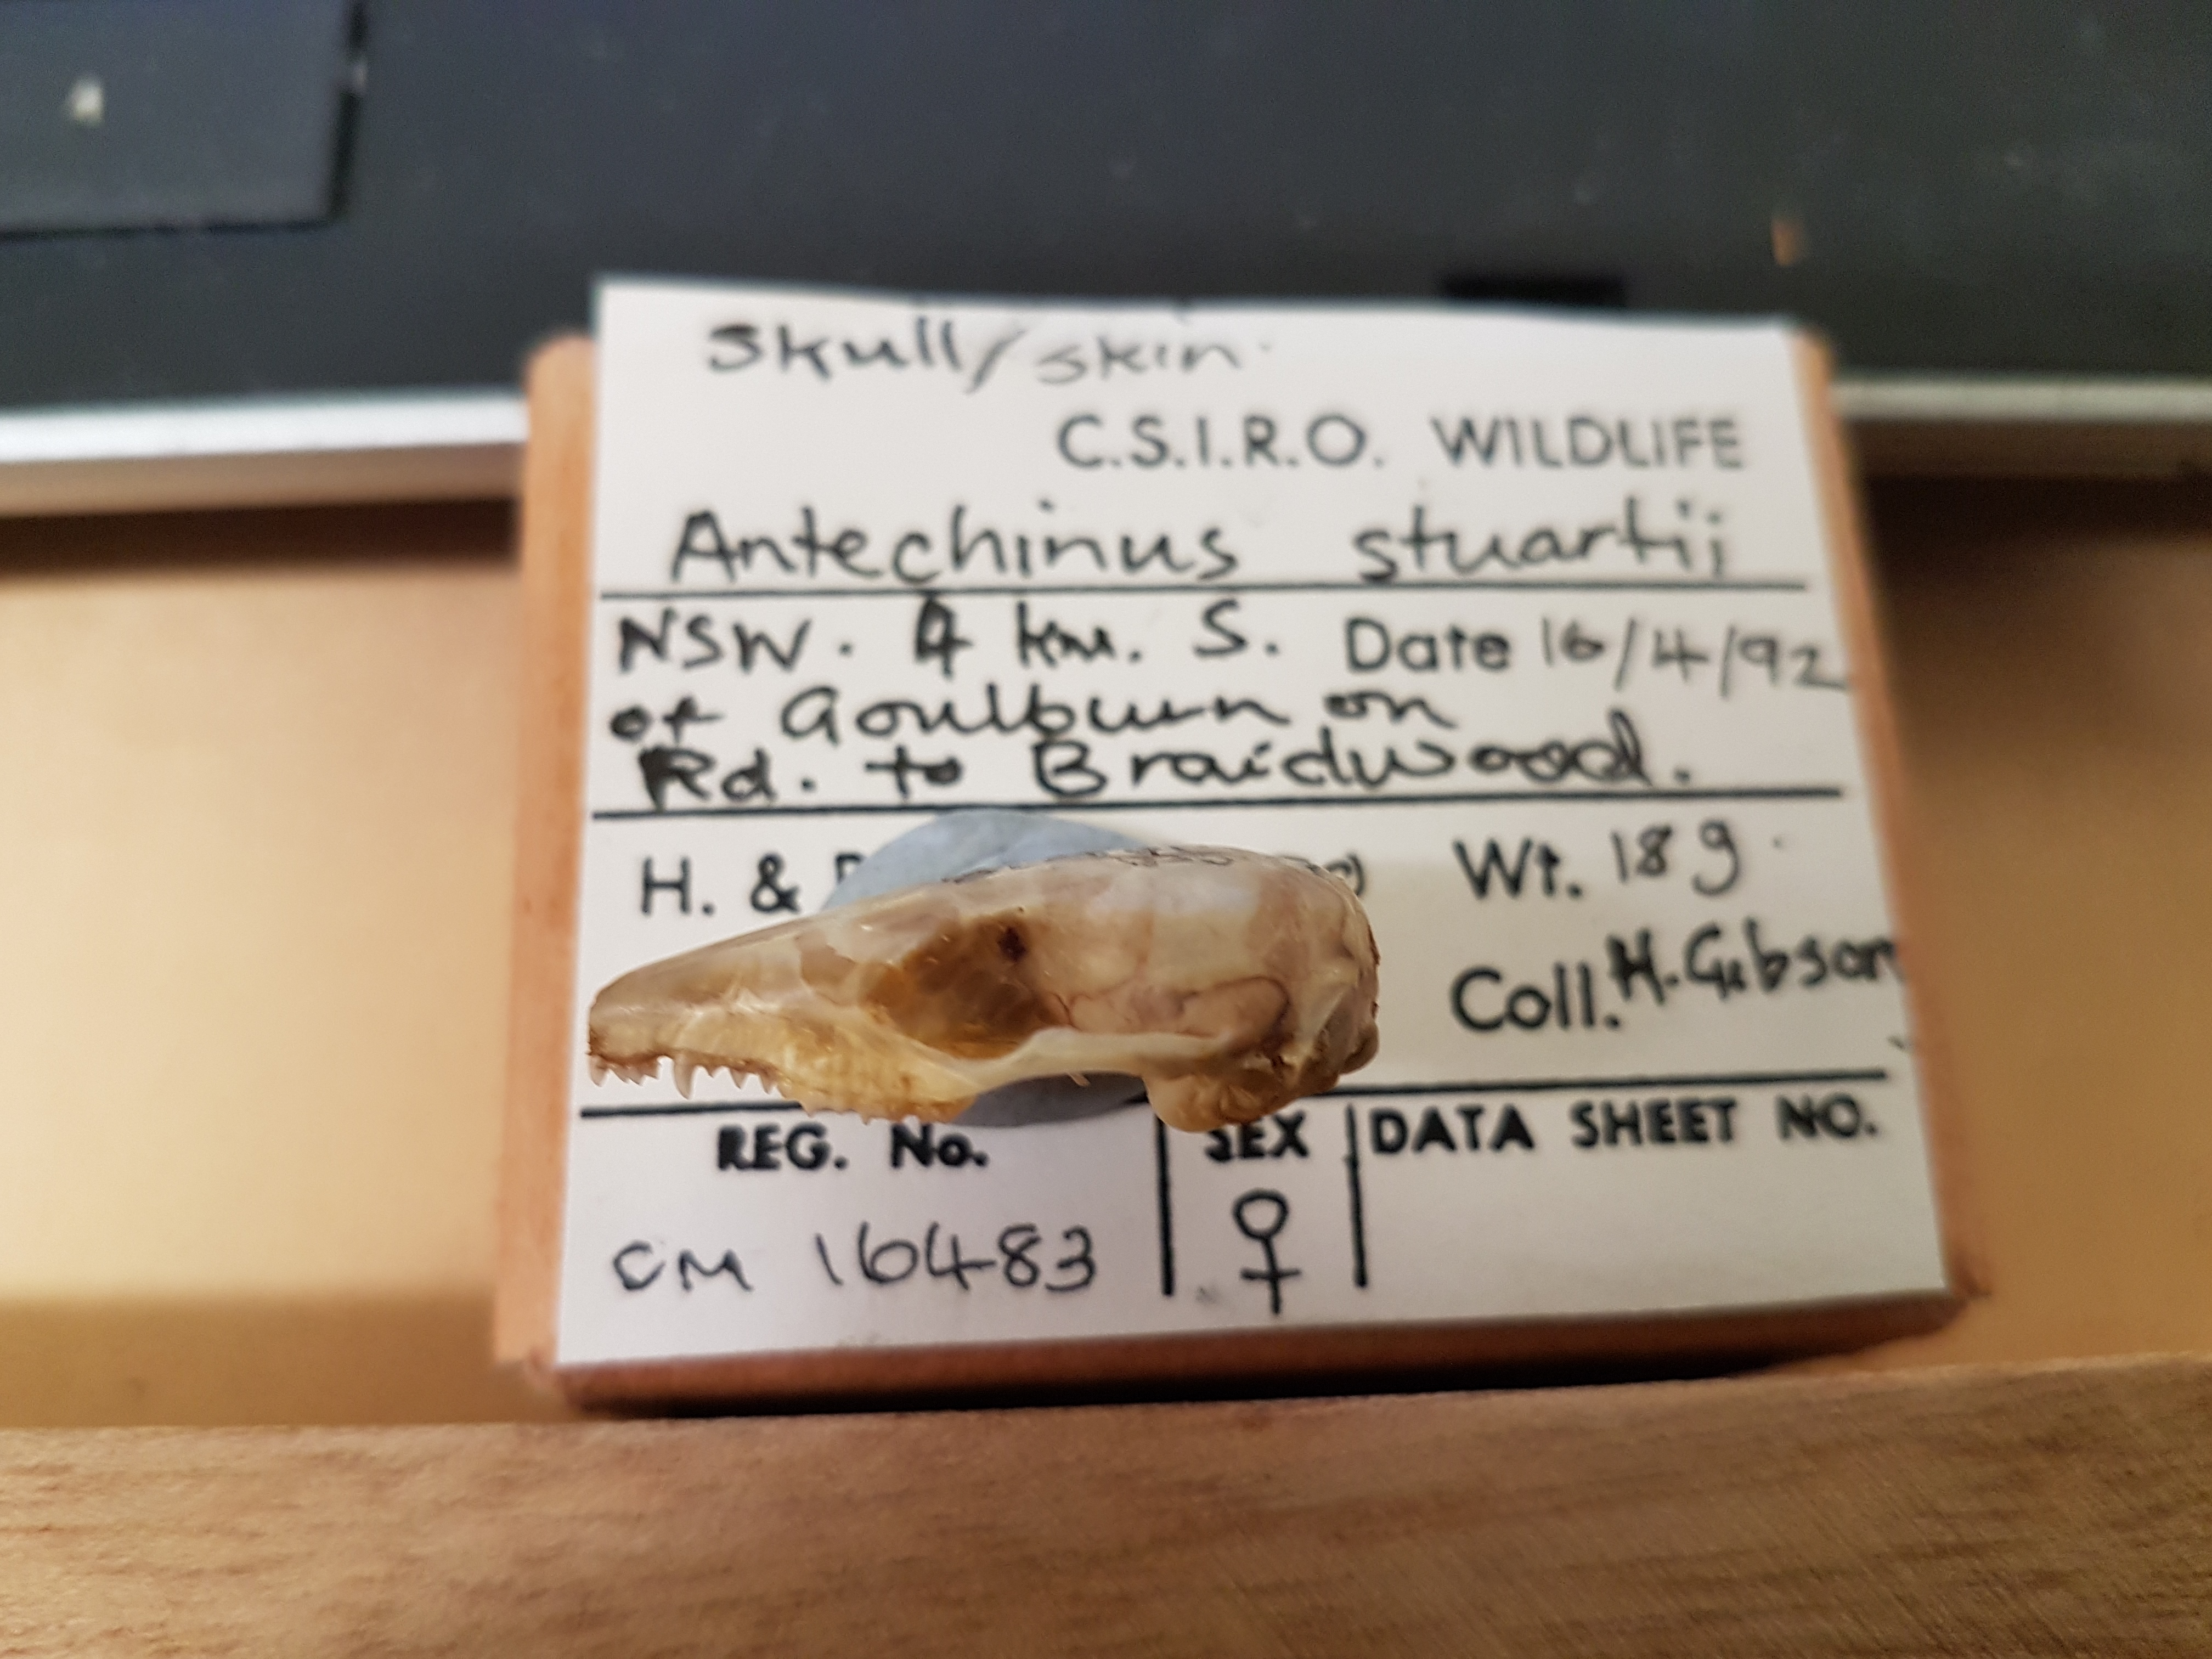 Skull/skin.
C.S.I.R.O. WILDLIFE
Antechinus stuartii
NSW. 4 km. S. Date 16/4/92
of Goulburn on
Rd. to Braidwood.
H. & Wt. 18g.
Coll. H. Gibson
REG. No. SEX DATA SHEET NO.
CM 16483 ♀